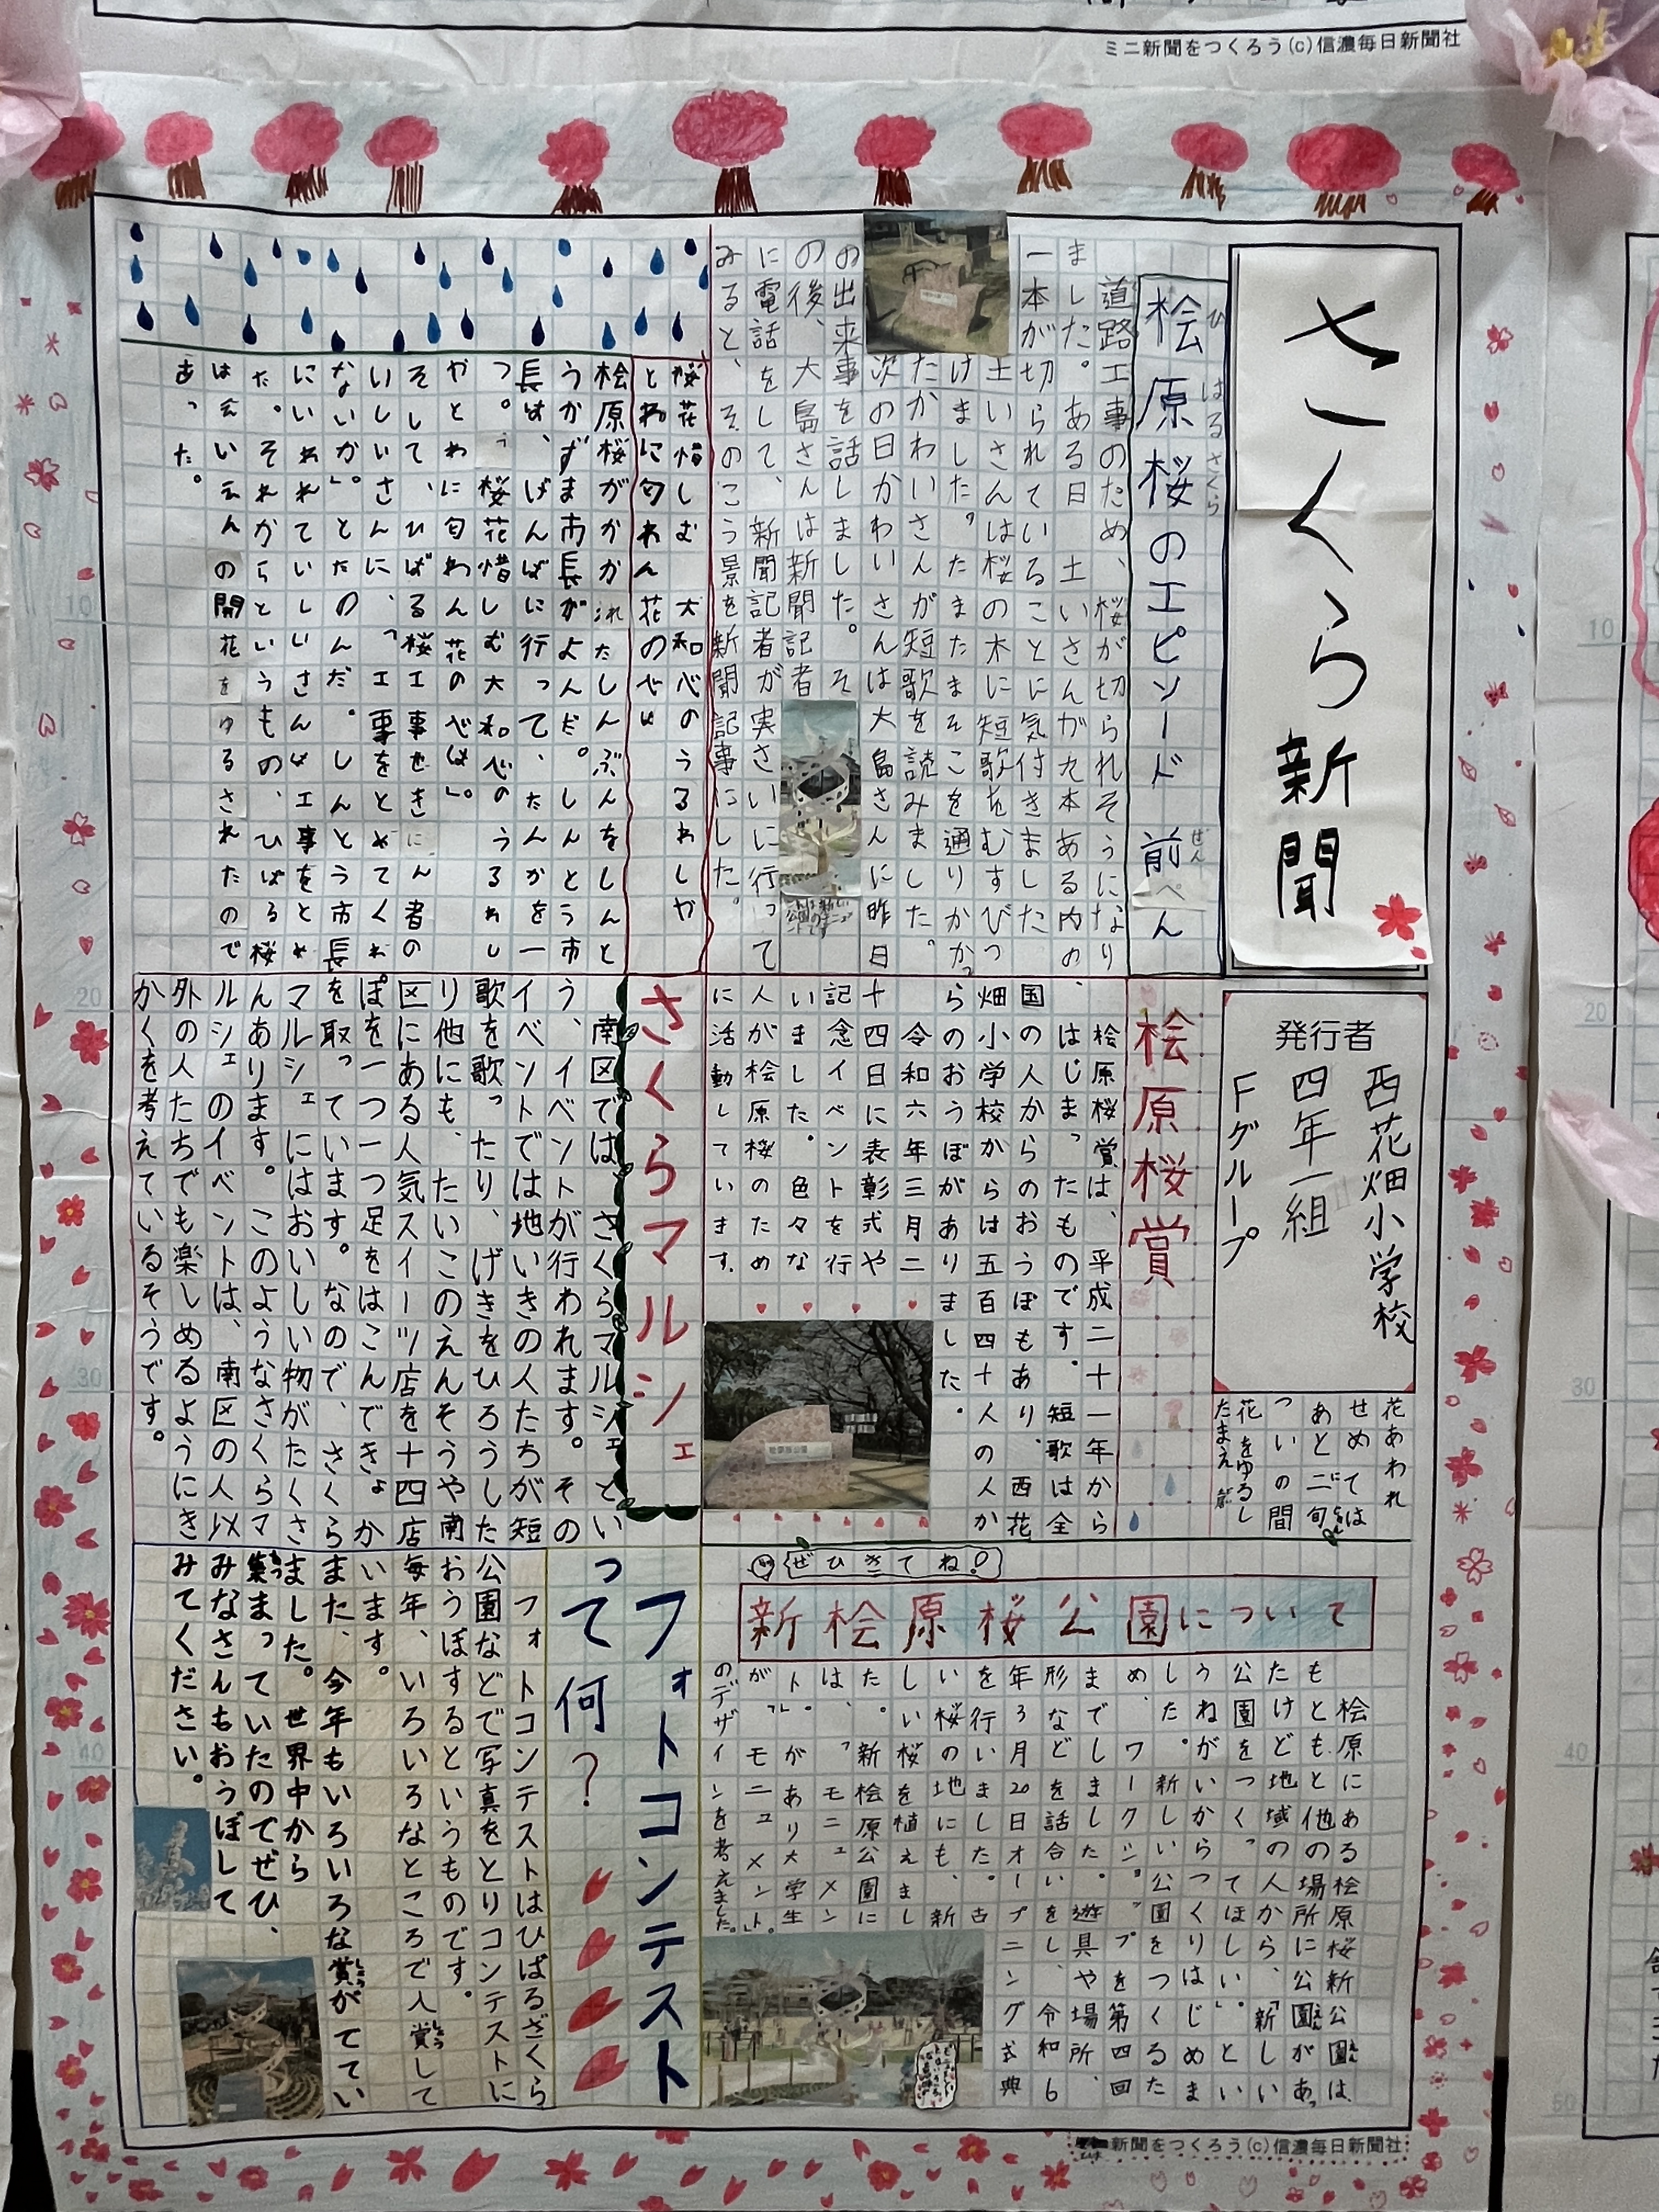 ミニ新聞をつくろう(c)信濃毎日新聞社
さくら新聞
発行者
西花畑小学校
四年一組
Fグループ
花あわれ
せめては
あと二旬
ついの間
花をゆるし
たまえ
桧原桜のエピソード 前ぺん
ひ はるさくら ぜん
道路工事のため、桜が切られそうになり
ました。ある日、土いさんが九本ある内の
一本が切られていることに気付きました
土いさんは桜の木に短歌をむすびつ
けました。たまたまそこを通りかかっ
たかわいさんが短歌を読みました。
次の日かわいさんは大島さんに昨日
の出来事を話しました。そ
の後、大島さんは新聞記者
に電話をして、新聞記者が実さいに行って
みると、そのこう景を新聞記事にした。
桜花惜しむ 大和心のうるわしや
とわに匂わん 花の心は
桧原桜がかかれたしんぶんをしんと
うかずま市長がよんだ。しんとう市
長は、げんばに行って、たんかを一
つ。「桜花惜しむ大和心のうるわし
やとわに匂わん花の心は」。
そして、ひばる桜工事せきにん者の
いしいさんに、「工事をとめてくれ
ないか」。とたのんだ。しんとう市長
にいわれていしいさんは工事をとめ
た。それからというもの、ひばる桜
は会いえんの開花をゆるされたので
あった。
桧原桜賞
桧原桜賞は、平成二十一年から
、はじまったものです。短歌は全
国の人からのおうぼもあり、西花
畑小学校からは五百四十人の人か
らのおうぼがありました。
令和六年三月二
十四日に表彰式や
記念イベントを行
いました。色々な
人が桧原桜のため
に活動しています.
さくらマルシェ
南区では、さくらマルシェとい
う、イベントが行われます。その
イベントでは地いきの人たちが短
歌を歌ったり、げきをひろうした
り他にも、たいこのえんそうや南
区にある人気スイーツ店を十四店
ぽを一つ一つ足をはこんできょか
を取っています。なので、さくら
マルシェにはおいしい物がたくさ
んあります。このようなさくらマ
ルシェのイベントは、南区の人以
外の人たちでも楽しめるようにき
かくを考えているそうです。
ぜひきてね!
新桧原桜公園について
桧原にある桧原桜新公園は、
もともと他の場所に公園があっ
たけど、地域の人から、「新しい
公園をつくってほしい」。とい
うねがいからつくりはじめま
した。新しい公園をつくるた
め、ワークショップを第四回
までしました。遊具や場所、
形などを話合いをし、令和6
年3月20日オープニング式典
を行いました。古
い桜の地にも、新
しい桜を植えまし
た。新桧原公園に
は、「モニュメン
ト」。があり大学生
が、「モニュメント」。
のデザインを考えました。
フォトコンテスト
って何?
フォトコンテストはひばるざくら
公園などで写真をとりコンテストに
おうぼするというものです。
毎年、いろいろなところで入賞して
います。
また、今年もいろいろな賞がでてい
ました。世界中から
集まっていたのでぜひ、
みなさんもおうぼして
みてください。
新聞をつくろう(c)信濃毎日新聞社